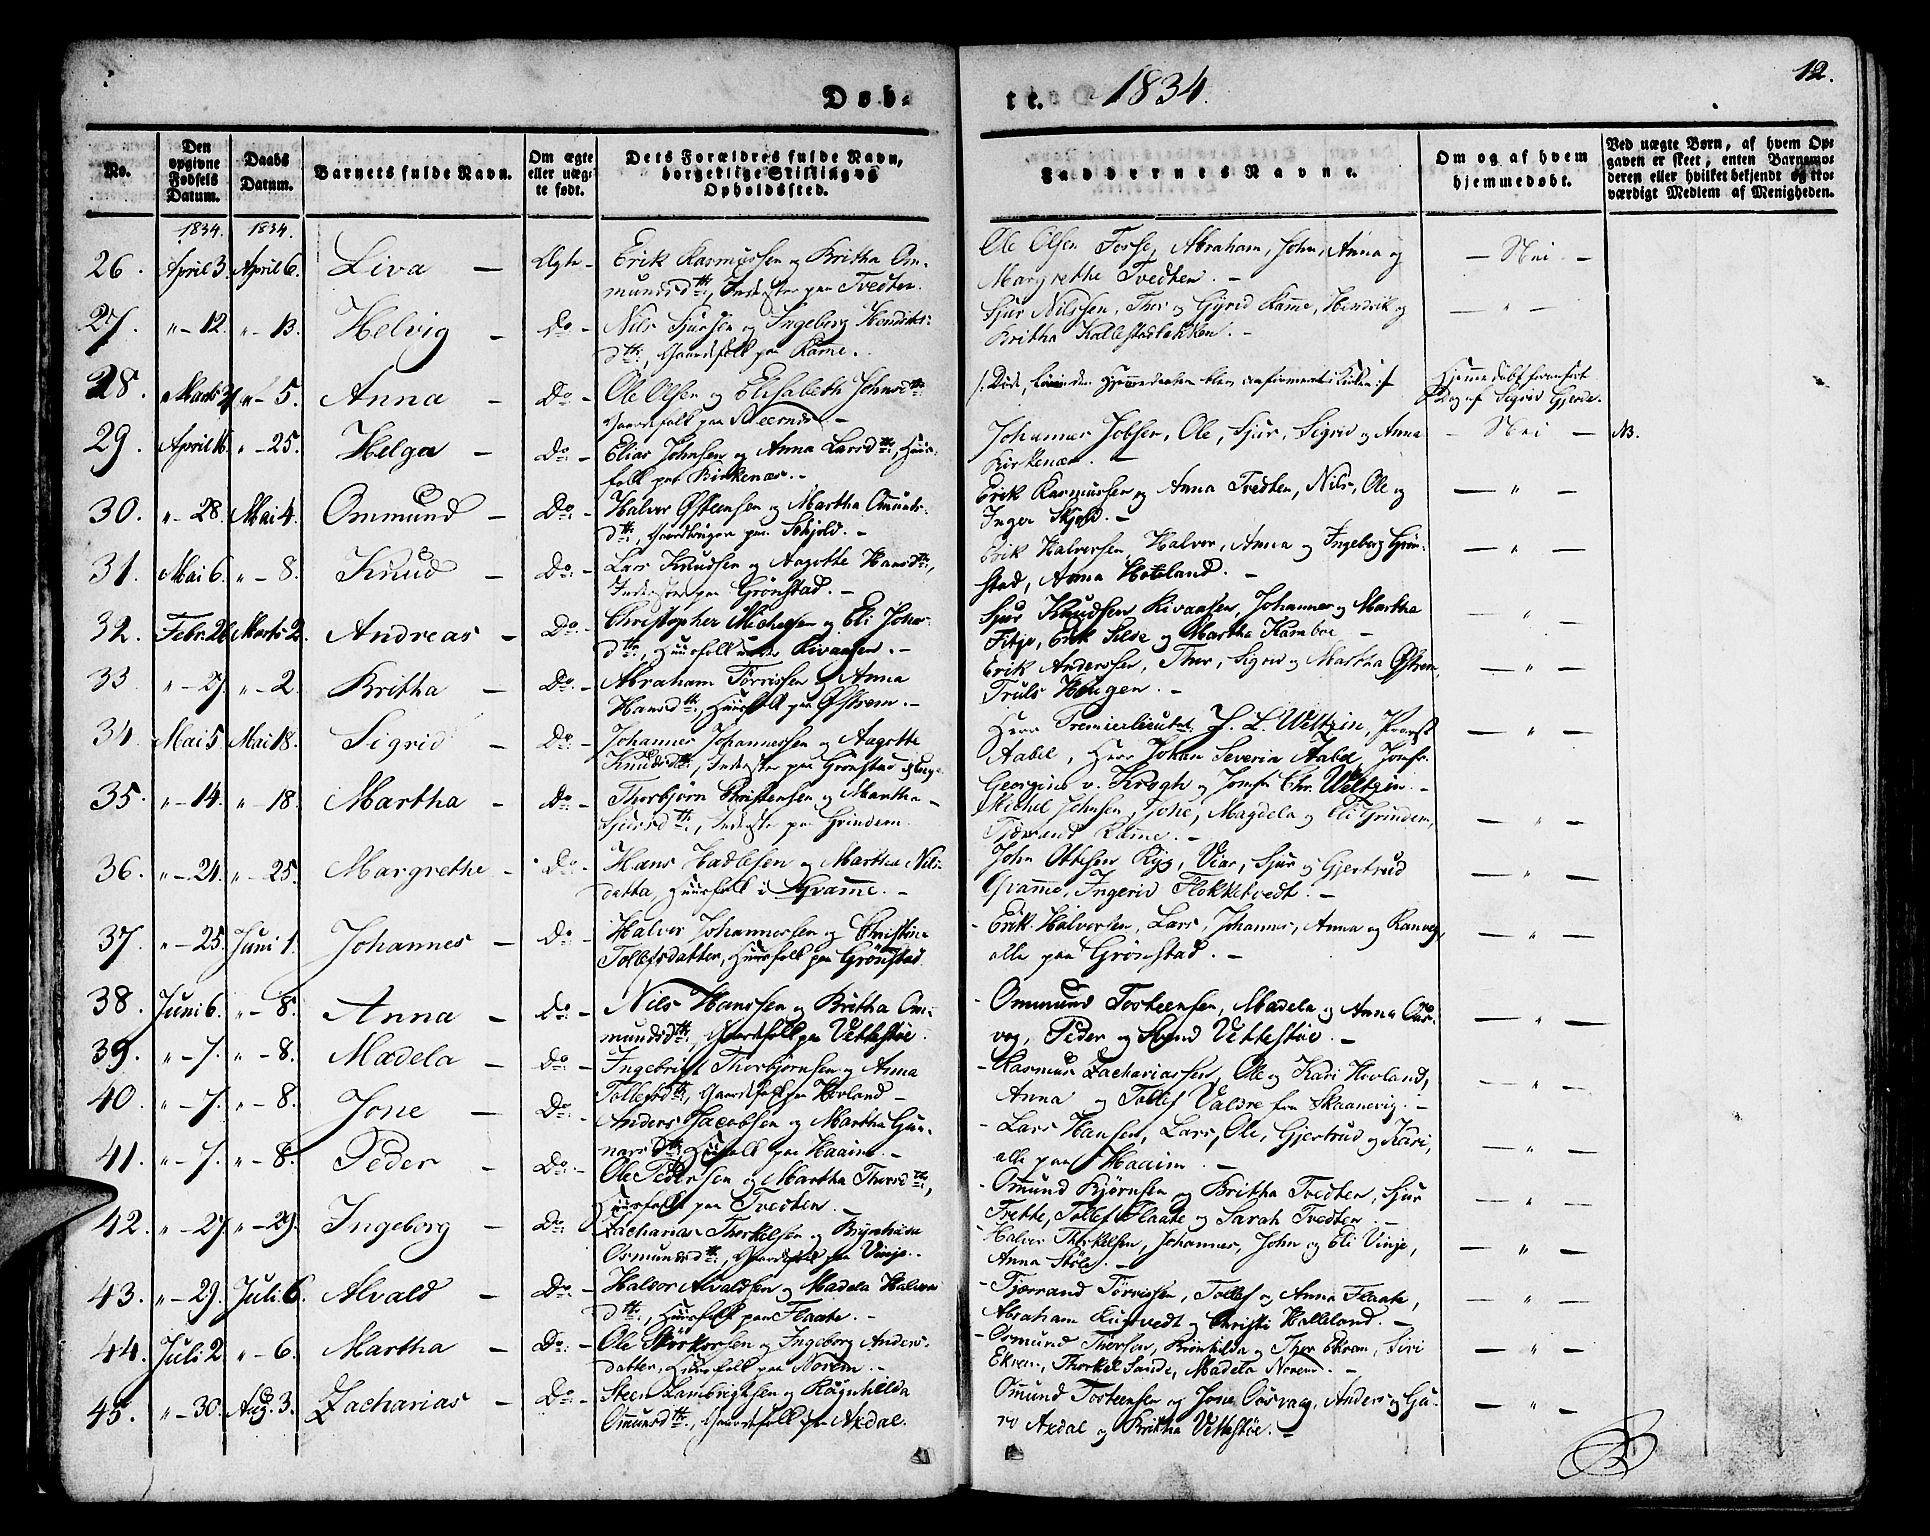 12.
Døb- te. 1834.
No.
Den opgivne Fødsels Datum.
Daabs Datum.
Barnets fulde Navn.
Om ægte eller uægte født.
Dets Forældres fulde Navn, borgerlige Stilling og Opholdssted.
Faddernes Navne.
Om og af hvem hjemmedøbt.
Ved uægte Børn, af hvem Opgaven er skeet, enten Barnemoderen eller hvilket bekjendt og troværdigt Medlem af Menigheden.
1834. 1834.
26. April 3. April 6. Liva — Ægte — Erik Rasmussen og Britha Om-
mundsdtr., Inderster paa Tvedten.
Ole Olsen Fosse, Abraham, John, Anna og
Margrethe Tvedten. —
— Nei —
27. " — 12. " — 13. Helvig — Do — Nils Sjursen og Ingeborg Hendriks-
dtr., Gaardfolk paa Ramme.
Sjur Nilssen, Thor og Gyrid Ramme, Hendrik og
Britha Kallestadbakken. —
— " —
28. " — 5. Anna — Do — Ole Olsen og Elisabeth Johnsdtr.
Gaardfolk paa
Hjemmedøbt
Dag af Sigrid Gjerde.
29. April 16. " — 25. Helga — Do — Elias Johnsen og Anna Larsdtr., Huus-
folk paa Birkenæs. —
Johannes Jobsen, Ole, Sjur, Sigrid og Anna
Birkenæs. —
— Nei — NB.
30. " — 28. Mai 4. Ommund — Do — Halvor Østeensen og Martha Omunds-
dtr., Gaardbruger paa Skjold. —
Erik Rasmussen og Anna Tvedten, Nils, Ole og
Inger Skjold. —
— " —
31. Mai 6. " — 8. Knud — Do — Lars Knudsen og Aagotte Hansdtr.,
Inderster paa Grönstad. —
Erik Halversen, Halver, Anna og Ingeberg Grön-
stad, Anna Hateland. —
— " —
32. Febr. 26. Marts 2. Andreas — Do — Christopher Michelsen og Eli Johns-
dtr., Huusfolk under Rivaasen. —
Sjur Knudsen Rivaasen, Johannes og Martha
Fitje, Erik Silde og Martha Kambve —
— " —
33 " — 27. " — 2. Britha — Do — Abraham Törrissen og Anna
Hansdtr., Huusfolk paa Østrem. —
Erik Anderssen, Thor, Sigrid og Martha Østrem,
Truls Haugen. —
— " —
34. Mai 5. Mai 18. Sigrid — Do — Johannes Johannessen og Aagotte
Knudsdtr., Inderster paa Grönstad
Herr Premierlieutnt. J. L. Weltzin, Provst
Aabel, Herr Johan Severin Aabel, Jomfr.
Georgine v. Krogh og Jomfr. Chr. Weltzin. —
— " —
35. " — 14. " — 18. Martha — Do — Thorbjörn Christensen og Martha
Sjursdtr., Inderster paa Grindem.
Michel Johnsen, Jone, Magdela og Eli Grindem,
Tjerand Ramme. —
— " —
36. " — 24. " — 25. Margrethe — Do — Hans Hadlesen og Martha Nils-
datter, Huusfolk i Qvamme. —
John Ottesen Ryg, Viar, Sjur og Gjertrud
Qvamme, Ingerid Flokketvedt. —
— " —
37. " — 25. Juni 1. Johannes — Do — Halver Johannessen og Christine
Tollefsdatter, Huusfolk paa Grönstad
— Erik Halversen, Lars, Johannes, Anna og Ranveg,
alle paa Grönstad. —
— " —
38. Juni 6. " — 8. Anna — Do — Nils Hanssen og Britha Om-
mundsdtr., Gaardfolk paa Vettestöe.
— Ommund Torsteensen, Madela og Anna Oos-
vog, Peder og Svend Vettestöe. —
— " —
39. " — 7. " — 8. Madela — Do — Ingebrigt Thorbjörnsen og Anna
Tollefsdtr., Gaardfolk paa Hovland —
— Rasmus Zachariassen, Ole og Kari Hovland,
Anna og Tollef Valdre fra Skaanevig. —
— " —
40. " — 7. " — 8. Jone — Do — Anders Jacobsen og Martha Gun-
narsdtr., Huusfolk paa Haaim. —
— Lars Hansen, Lars, Ole, Gjertrud og Kari,
alle paa Haaim. —
— " —
41. " — 7. " — 8. Peder — Do — Ole Pedersen og Martha Thorsdtr.,
Huusfolk paa Tvedten. —
— Omund Björnsen og Britha Tvedten, Sjur
Frette, Tollef Flaate og Sarah Tvedten. —
— " —
42. " — 27. " — 29. Ingeborg — Do — Zacharias Thorkelsen og Brynhilda
Osmundsdtr., Gaardfolk paa Vinje.
Halver Thorkelsen, Johannes, John og Eli Vinje,
Anna Støle. —
— " —
43. " — 29. Juli 6. Alvald — Do — Halvor Alvaldsen og Madela Halvors
dtr., Huusfolk paa Flaate. —
— Tjerrand Törrissen, Tollef og Anna Flaate,
Abraham Rustvedt og Christi Halleland. —
— " —
44. Juli 2. " — 6. Martha — Do — Ole Störkorsen og Ingeborg Anders-
datter, Huusfolk paa Norem. —
— Osmund Thorsen, Brönhilda og Thor Ekrem, Siri
Ekrem, Thorkel Sande, Madela Norem. —
— " —
45. " — 30. Aug. 3. Zacharias — Do — Steen Lambrigtsen og Ragnhilda
Omunsdtr., Gaardfolk paa Axdal.
Omund Torsteensen og Jone Oosvaag, Anders og Gu-
ro Axdal og Britha Vettestöe. —
— " —